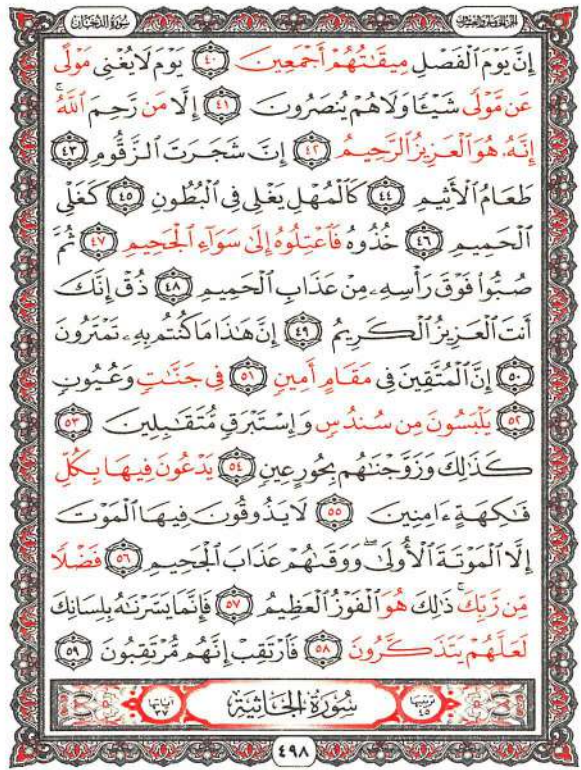 الجزء الخامس والعشرون سورة الدخان
إِنَّ يَوْمَ ٱلْفَصْلِ مِيقَٰتُهُمْ أَجْمَعِينَ ٤٠ يَوْمَ لَا يُغْنِى مَوْلًى
عَن مَّوْلًى شَيْـًٔا وَلَا هُمْ يُنصَرُونَ ٤١ إِلَّا مَن رَّحِمَ ٱللَّهُ ۚ
إِنَّهُۥ هُوَ ٱلْعَزِيزُ ٱلرَّحِيمُ ٤٢ إِنَّ شَجَرَتَ ٱلزَّقُّومِ ٤٣
طَعَامُ ٱلْأَثِيمِ ٤٤ كَٱلْمُهْلِ يَغْلِى فِى ٱلْبُطُونِ ٤٥ كَغَلْىِ
ٱلْحَمِيمِ ٤٦ خُذُوهُ فَٱعْتِلُوهُ إِلَىٰ سَوَآءِ ٱلْجَحِيمِ ٤٧ ثُمَّ
صُبُّوا۟ فَوْقَ رَأْسِهِۦ مِنْ عَذَابِ ٱلْحَمِيمِ ٤٨ ذُقْ إِنَّكَ
أَنتَ ٱلْعَزِيزُ ٱلْكَرِيمُ ٤٩ إِنَّ هَٰذَا مَا كُنتُم بِهِۦ تَمْتَرُونَ
٥٠ إِنَّ ٱلْمُتَّقِينَ فِى مَقَامٍ أَمِينٍ ٥١ فِى جَنَّٰتٍ وَعُيُونٍ
٥٢ يَلْبَسُونَ مِن سُندُسٍ وَإِسْتَبْرَقٍ مُّتَقَٰبِلِينَ ٥٣
كَذَٰلِكَ وَزَوَّجْنَٰهُم بِحُورٍ عِينٍ ٥٤ يَدْعُونَ فِيهَا بِكُلِّ
فَٰكِهَةٍ ءَامِنِينَ ٥٥ لَا يَذُوقُونَ فِيهَا ٱلْمَوْتَ
إِلَّا ٱلْمَوْتَةَ ٱلْأُولَىٰ ۖ وَوَقَىٰهُمْ عَذَابَ ٱلْجَحِيمِ ٥٦ فَضْلًا
مِّن رَّبِّكَ ۚ ذَٰلِكَ هُوَ ٱلْفَوْزُ ٱلْعَظِيمُ ٥٧ فَإِنَّمَا يَسَّرْنَٰهُ بِلِسَانِكَ
لَعَلَّهُمْ يَتَذَكَّرُونَ ٥٨ فَٱرْتَقِبْ إِنَّهُم مُّرْتَقِبُونَ ٥٩
ترتيبها ٤٥ سُورَةُ الجَاثِيَة آياتها ٣٧
٤٩٨